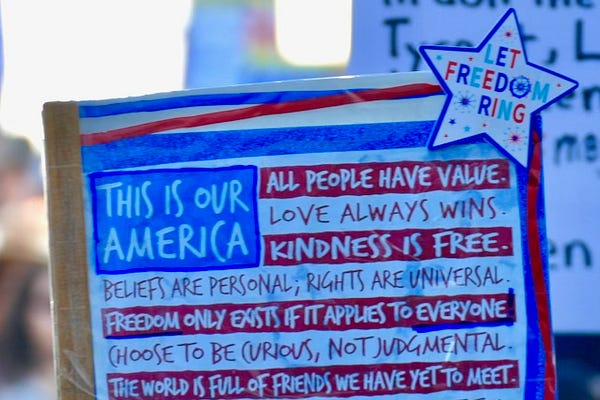 LET
FREEDOM
RING
THIS IS OUR
AMERICA
ALL PEOPLE HAVE VALUE.
LOVE ALWAYS WINS.
KINDNESS IS FREE.
BELIEFS ARE PERSONAL; RIGHTS ARE UNIVERSAL.
FREEDOM ONLY EXISTS IF IT APPLIES TO EVERYONE.
CHOOSE TO BE CURIOUS, NOT JUDGMENTAL.
THE WORLD IS FULL OF FRIENDS WE HAVE YET TO MEET.